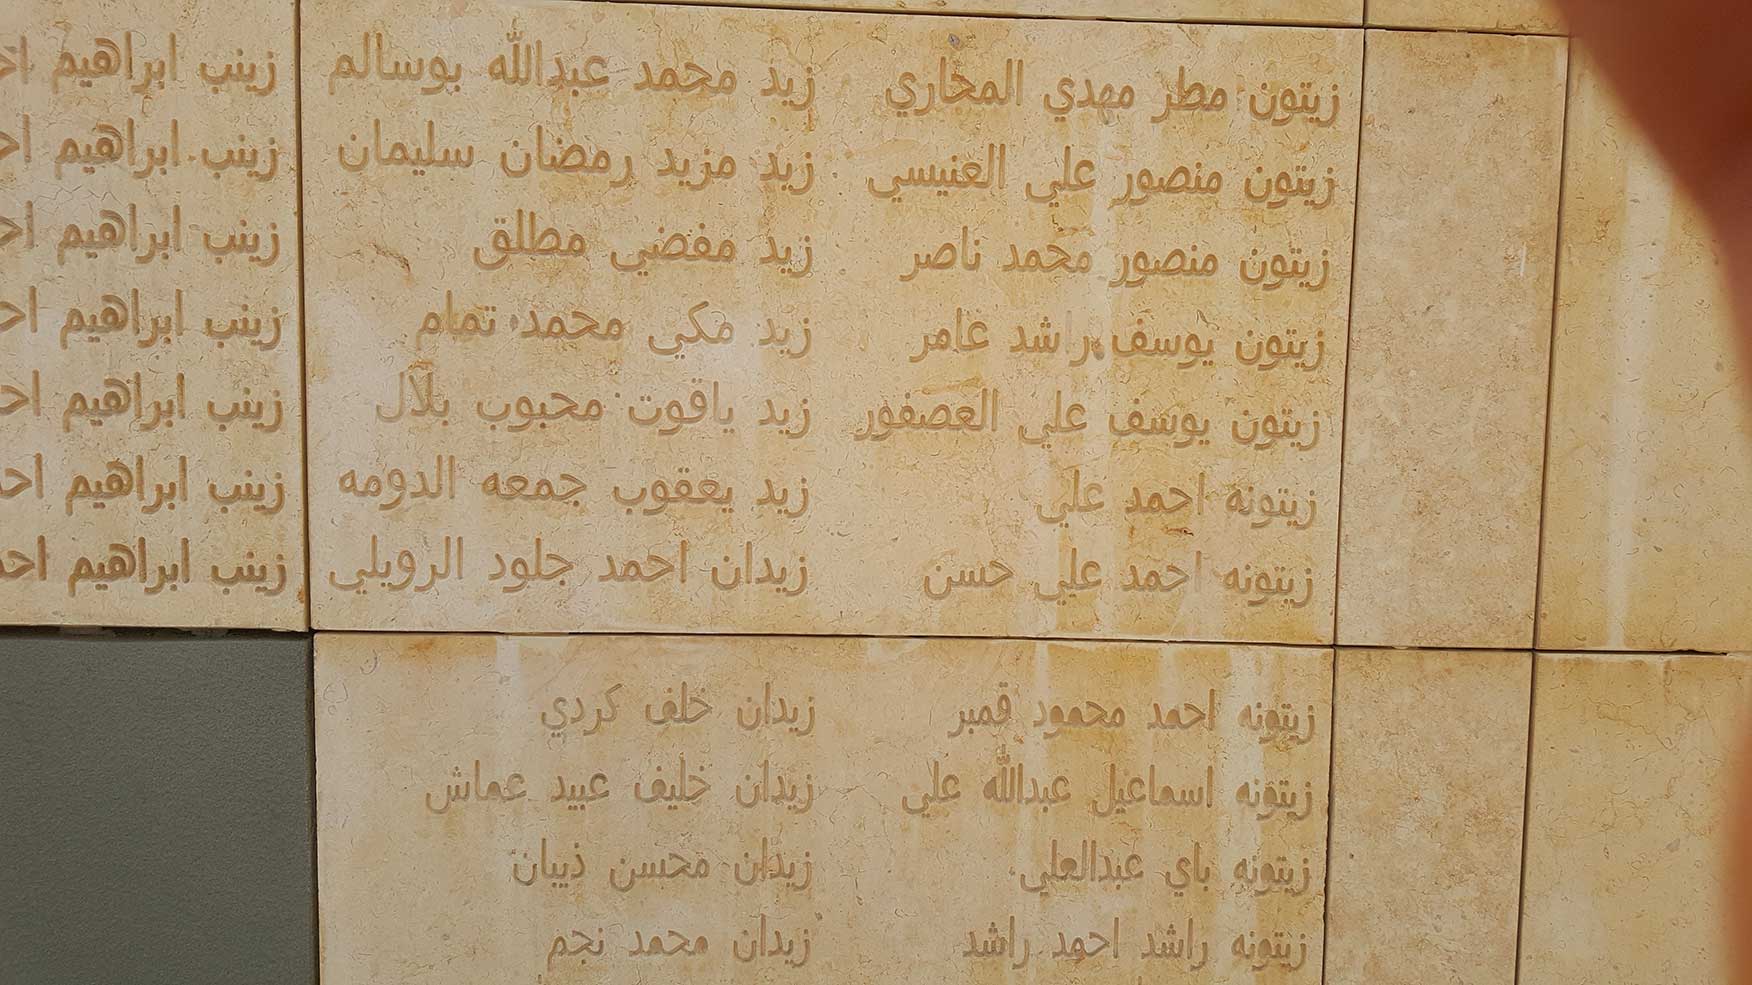 زيتون مطر مهدي المخاري
زيتون منصور علي العنيسي
زيتون منصور محمد ناصر
زيتون يوسف راشد عامر
زيتون يوسف علي العصفور
زيتونه احمد علي
زيتونه احمد علي حسن
زيتونه احمد محمود قمبر
زيتونه اسماعيل عبدالله علي
زيتونه باي عبدالعلي
زيتونه راشد احمد راشد
زيد محمد عبدالله بوسالم
زيد مزيد رمضان سليمان
زيد مفضي مطلق
زيد مكي محمد تمام
زيد ياقوت محبوب بلال
زيد يعقوب جمعه الدومه
زيدان احمد جلود الرويلي
زيدان خلف كردي
زيدان خليف عبيد عماش
زيدان محسن ذيبان
زيدان محمد نجم
زينب ابراهيم
زينب ابراهيم
زينب ابراهيم
زينب ابراهيم
زينب ابراهيم
زينب ابراهيم
زينب ابراهيم